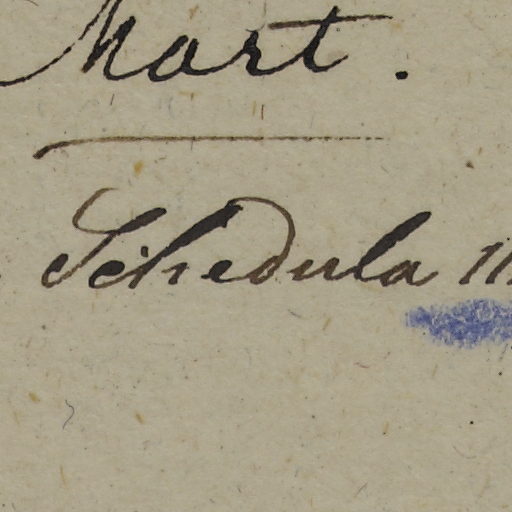 Mart.
Schedula 11